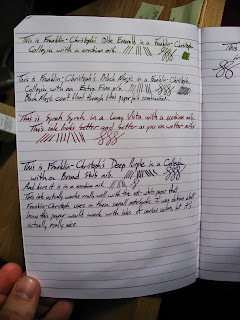 This is Franklin-Christoph's Olde Emerald in a Franklin-Christoph
Collegia with a medium nib.
This is Franklin-Christoph's Black Magic in a Franklin-Christoph
Collegia with an Extra Fine nib.
Black Magic won't bleed through this paper
This is Syrah Syrah in a Lamy Vista with a medium nib.
This ink looks better and better as you use wetter nibs
This is Franklin-Christoph's Deep Purple in a Collegia
with a Broad Stub nib.
And here it is in a medium nib.
This ink actually works really well with the off-white paper that
Franklin-Christoph uses in these small notebooks. I was curious about
how this paper would work with inks of varied colors, but it's
actually really nice.
This